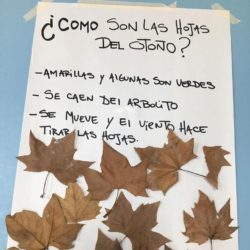 ¿COMO SON LAS HOJAS
DEL OTOÑO?
- AMARILLAS Y ALGUNAS SON VERDES
- SE CAEN DEL ARBOLITO
- SE MUEVE Y EL VIENTO HACE
TIRAR LAS HOJAS.